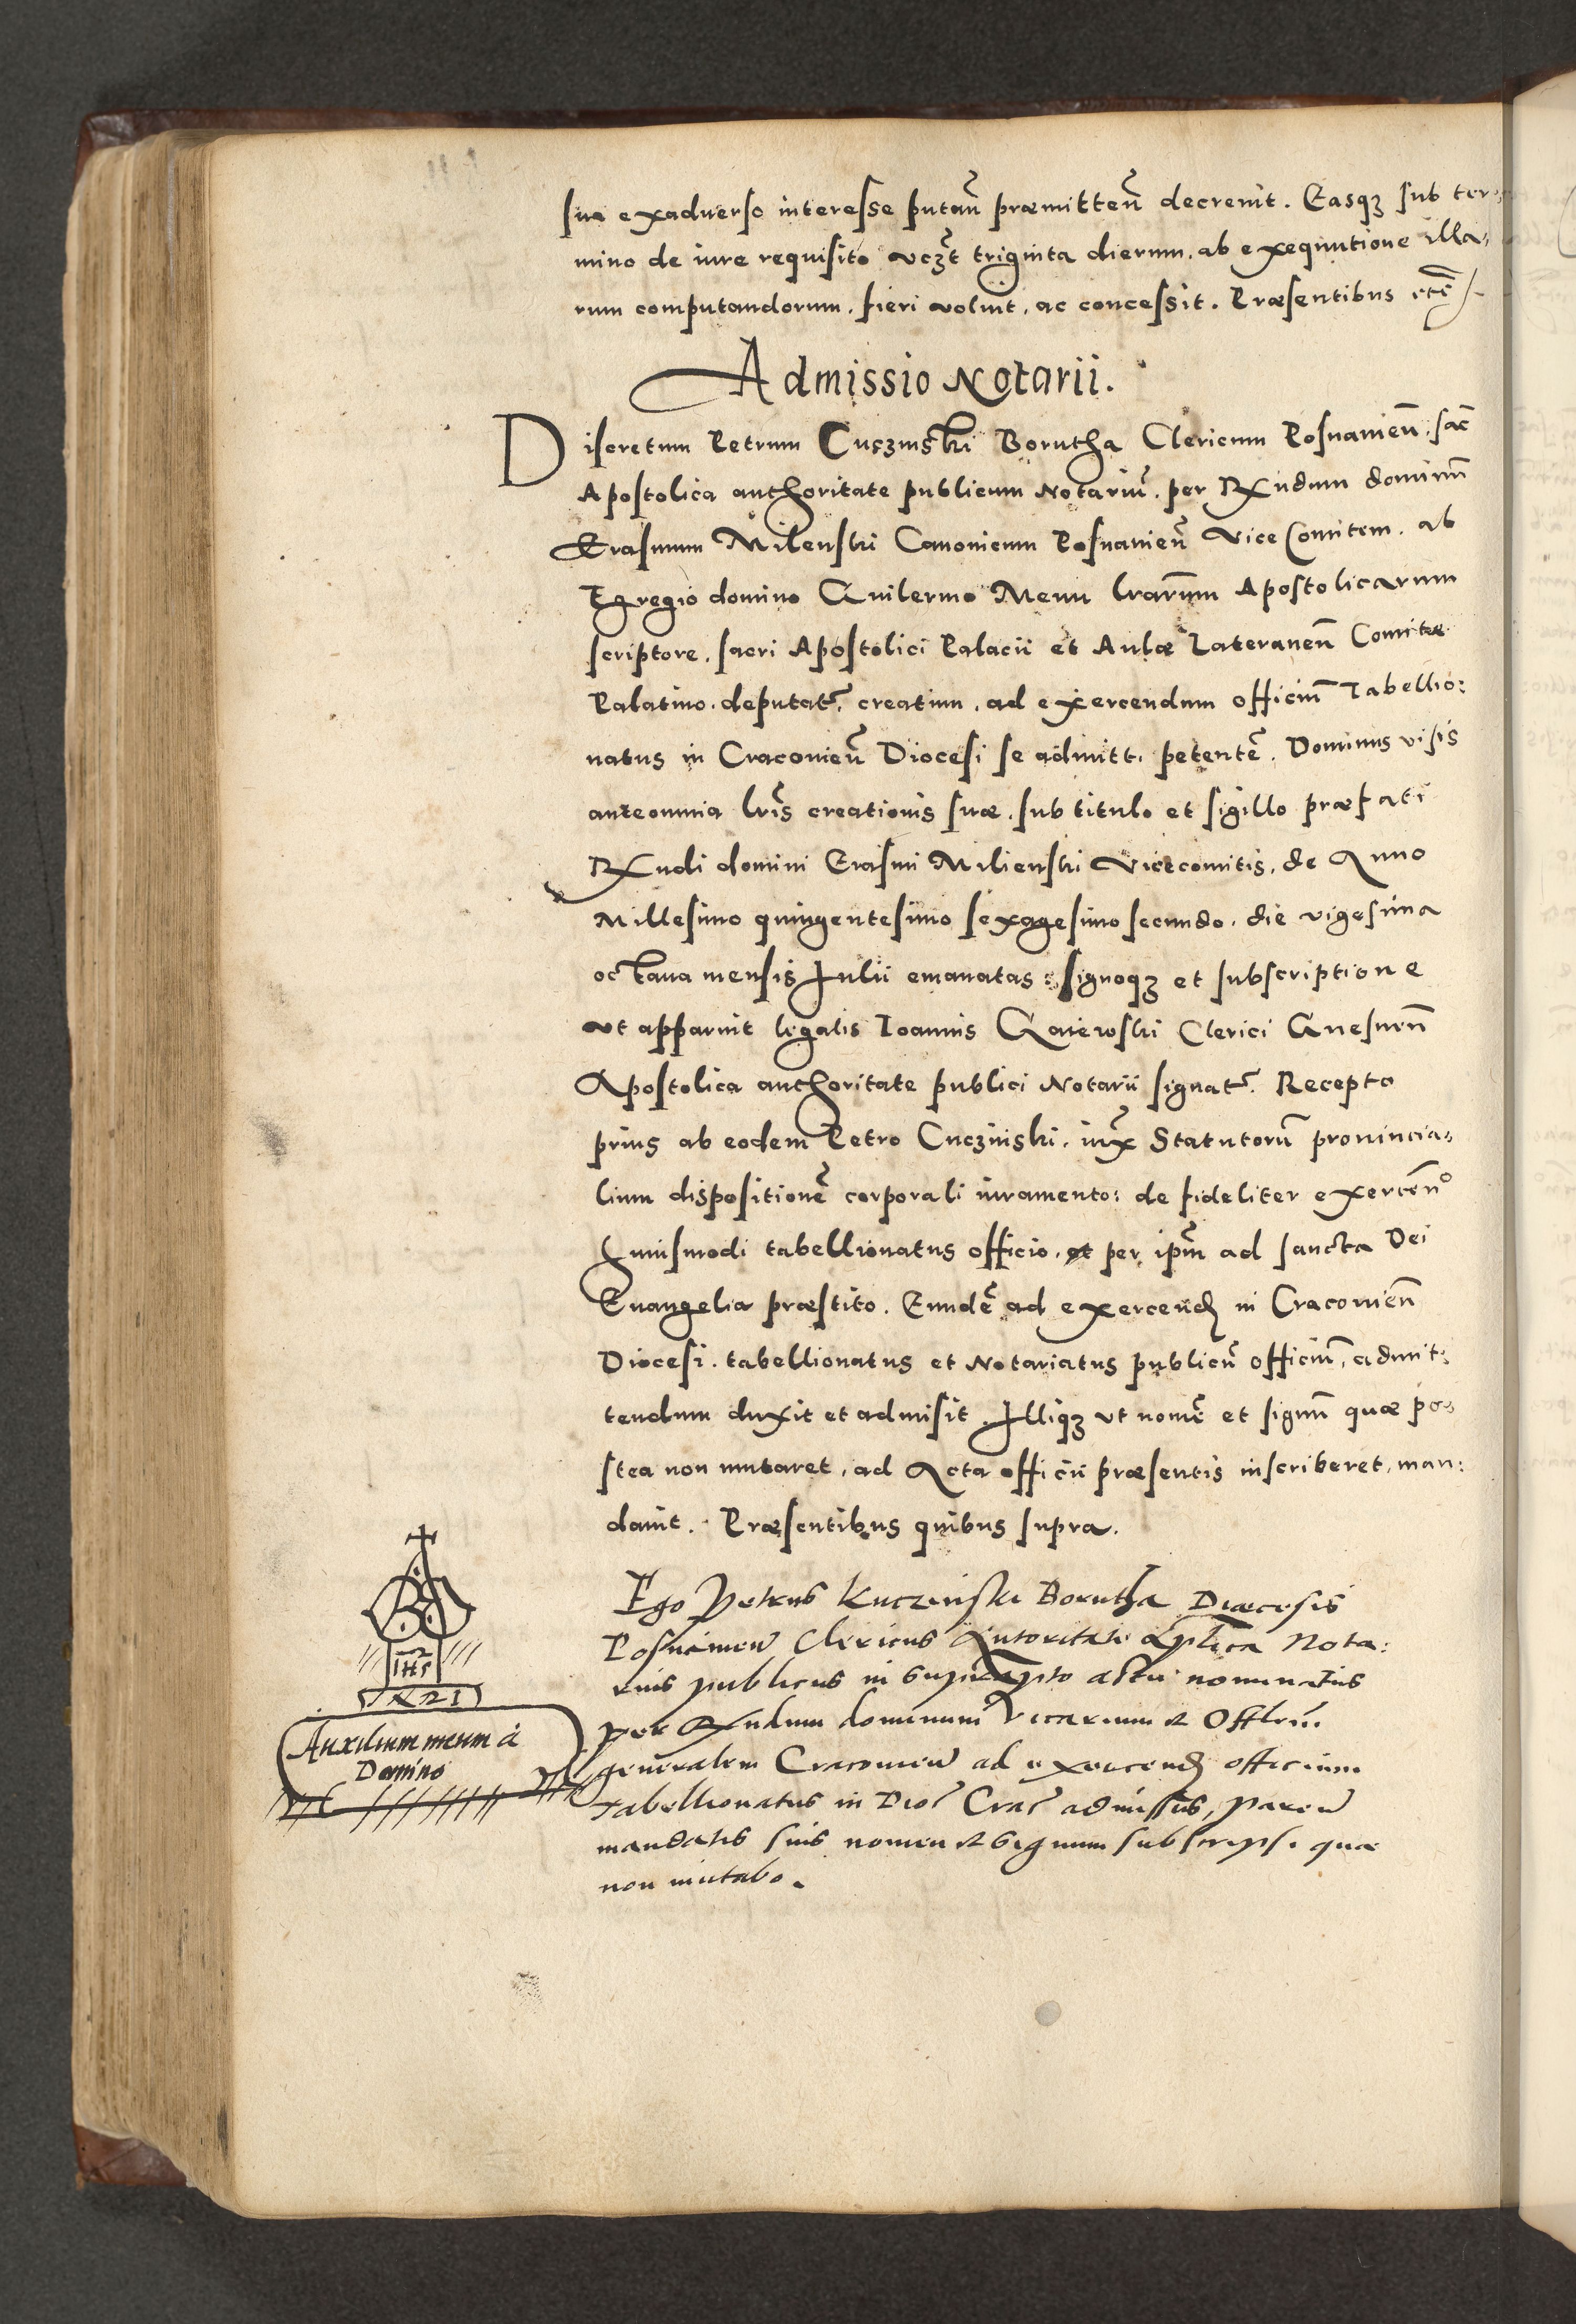 sua exaduerso interesse putan̄ præmitten̄ decreuit. Easqꝫ sub ter-
mino de iure requisito vcꝫt triginta dierum, ab exequutione illa-
rum computandorum, fieri voluit, ac concessit. Præsentibus etc̄
Admissio Notarii.
Discretum Petrum Cuszinski Borutha Clericum Posnanien̄, sac̄
Apostolica authoritate publicum Notariū, per Rx̄ndum dominū
Erasmum Milenski Canonicum Posnanien̄ Vice Comitem, ab
Egregio domino Guilermo Menu lrarūm Apostolicarum
scriptore, sacri Apostolici Palacii et Aulæ Lateranen̄ Comite
Palatino, deputat̄, creatum, ad exercendum officiū Tabellio:
natus in Cracouien̄ Diocesi se admitti petentē. Dominus visis
anteomnia lrīs creationis suæ, sub titulo et sigillo præfati
Rx̄ndi domini Erasmi Milienski Vicecomitis, de Anno
Millesimo quingentesimo sexagesimo secundo, die vigesima
octaua mensis Iulii emanatas: signoqꝫ et subscriptione
vt apparuit legalis Ioannis Gaiewski Clerici Gnesnen̄
Apostolica authoritate publici Notarii signat̄. Recepto
prius ab eodem Petro Cuczinski, iux̄ Statutorū prouincia-
lium dispositionē corporali iuramento: de fideliter exercen̄º
huiusmodi tabellionatus officio, per ipm̄ ad sancta Dei
Euangelia præstito. Eundē ad exercend̄ in Cracouien̄
Diocesi, tabellionatus et Notariatus publicū officiū, admit-
tendum duxit et admisit. Illiqꝫ vt nomē et signū quæ po-
stea non mutaret, ad Acta officii præsentis inscriberet, man:
dauit. Præsentibus quibus supra.
Ego Petrus Kuczinski Borutha Diœcesis
Posnanien̄ Clericus Autoritate Aplīca Nota:
rius publicus in suprascripto actu nominatus
per Rx̄ndum dominum Vicarium et Offlēm
generalem Cracouien̄ ad exercend̄ officium
Tabellionatus in Dioc̄ Crac̄ admissus, paren̄
mandatis suis nomen et signum subscripsi quæ
non mutabo.
IHS
Auxilium meum à
Domino